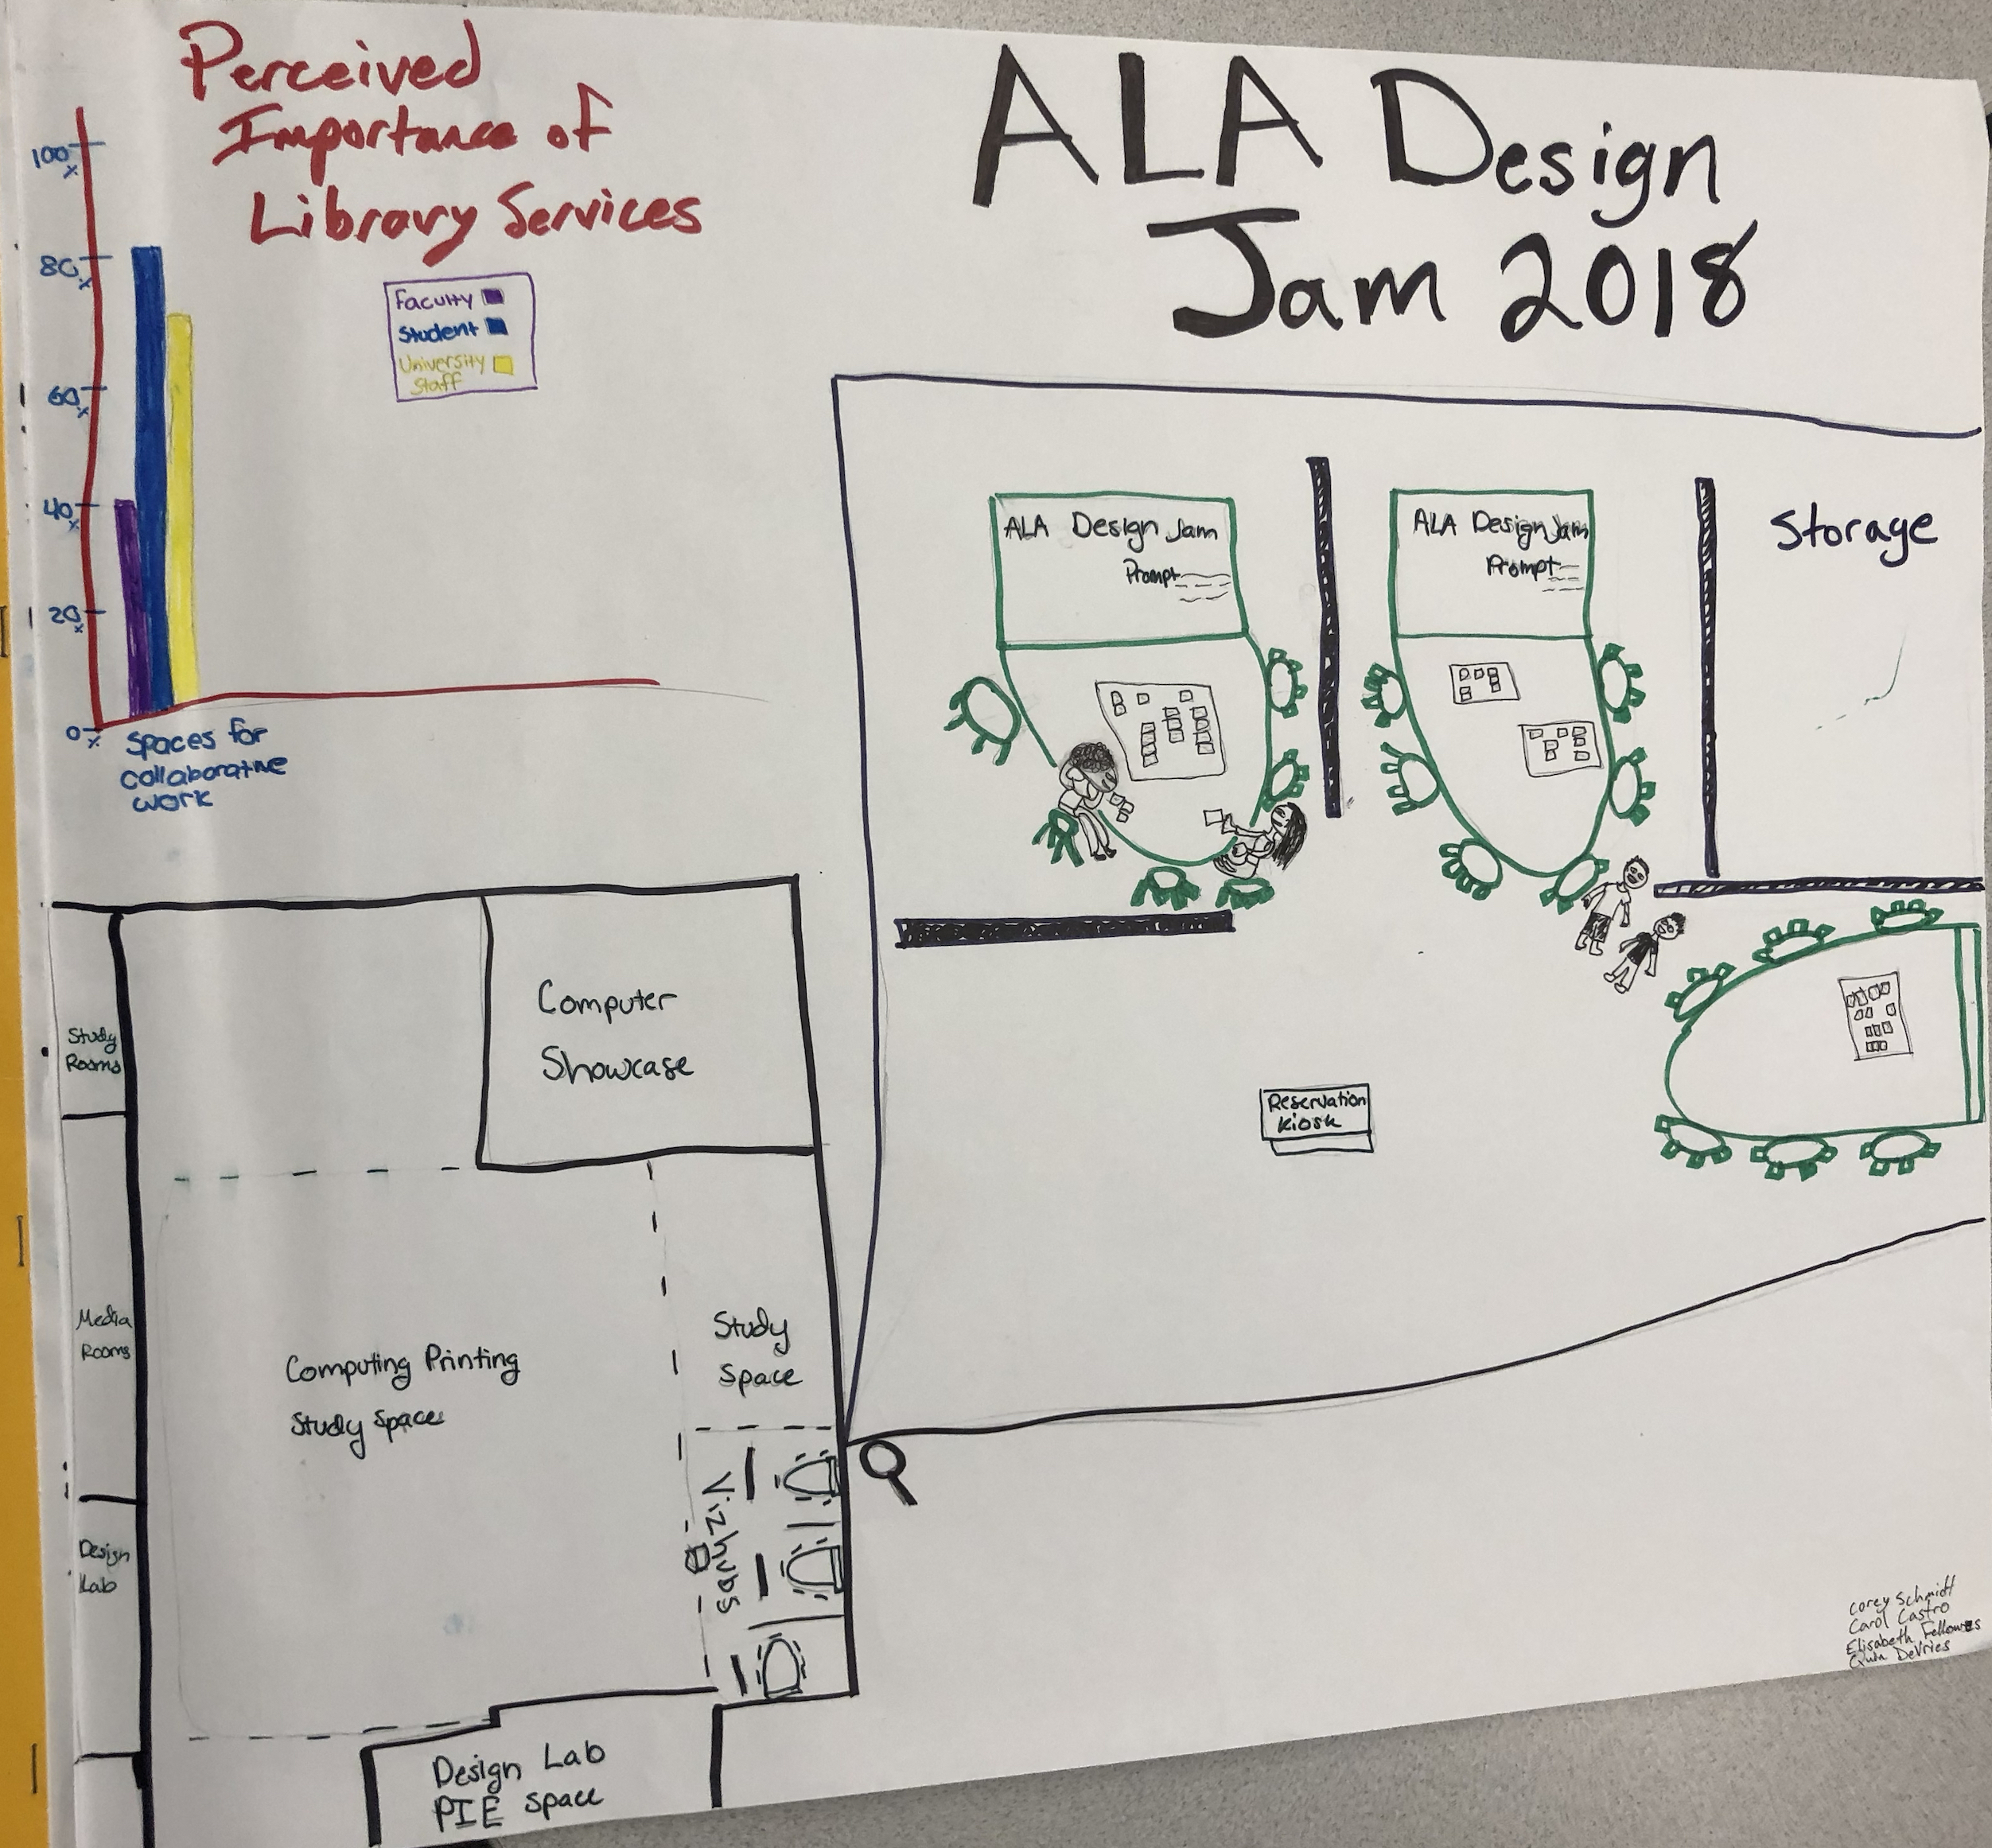 Perceived
Importance of
Library Services
100%
80%
60%
40%
20%
0%
Faculty
Student
University
Staff
Spaces for
collaborative
work
ALA Design
Jam 2018
ALA Design Jam
Prompt
ALA Design Jam
Prompt
Storage
Reservation
Kiosk
Study
Rooms
Media
Rooms
Design
Lab
Computer
Showcase
Computing Printing
Study Space
Study
Space
Vizhubs
Design Lab
PIE space
Corey Schmidt
Carol Castro
Elisabeth Fellowes
Quin DeVries